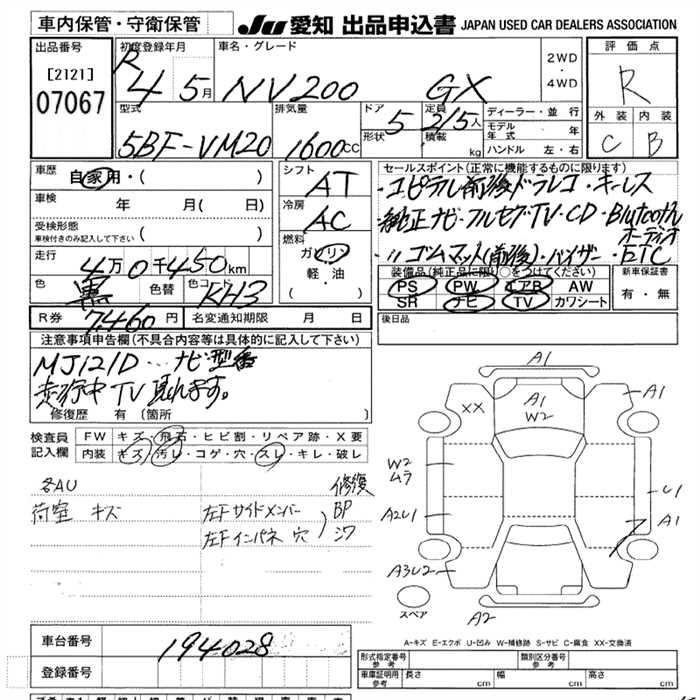 車内保管・守衛保管 JU 愛知 出品申込書 JAPAN USED CAR DEALERS ASSOCIATION
出品番号 初度登録年月 車名・グレード 2WD・4WD 評価点
[2121] 07067 R 4 5月 NV200 GX R
外装 内装
C B
型式 排気量 ドア 形状 定員 積載 ディーラー・並行
5BF-VM20 1600cc 5 2/5人 kg モデル年式 年
ハンドル 左・右
車歴 自家用・( )
シフト AT
セールスポイント(正常に機能するものに限ります)
・エピテレ前後ドラレコ・キーレス
車検 年 月( 日)
冷房 AC
・純正ナビ・フルセグTV・CD・Blutooth
オーディオ
受検形態
車検付きのみ記入して下さい( )
燃料 ガソリン・軽油
( )
・〃ゴムマット(前後)・バイザー・ETC
走行 4万0千450km
装備品(純正品に限り○をつけてください) 新車保証書
PS PW エアB AW 有・無
SR ナビ TV カワシート
色 黒 色替 色コード KH3
R券 7460円 名変通知期限 月 日
後日品
注意事項申告欄(不具合内容等は具体的に記入して下さい)
MJ121D…ナビ型番
走行中TV見れます。
修復歴 有〔箇所 〕
検査員記入欄 FW キズ・飛石・ヒビ割・リペア跡・X要
内装 キズ・汚レ・コゲ・穴・スレ・キレ・破レ
各AU 修復
荷室 キズ 左Fサイドメンバー BP
左Fインパネ 穴 シワ
A1
XX A1 W2 A1
W2 ムラ
U1
A2U1 A1
A3U2
スペア A2
A-キズ E-エクボ U-凹み W-補修跡 S-サビ C-腐食 XX-交換済
車台番号 194028
登録番号
形式指定番号 参考 類別区分番号 参考
車庫証明用 参考 長さ cm 幅 cm 高さ cm